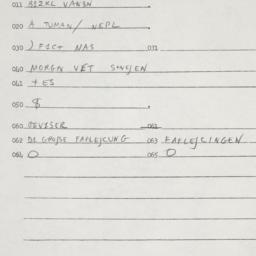 011 BIZKL VANSN
020 A TUMAN/ NEPL
030 ) FICT NAS 031
040 MORGN VET
041 + ES
050 $
060 DEVISER 061
062 DI GROJSE FARLEJCUNG 063 FARLEJCINGEN
064 O 065 O